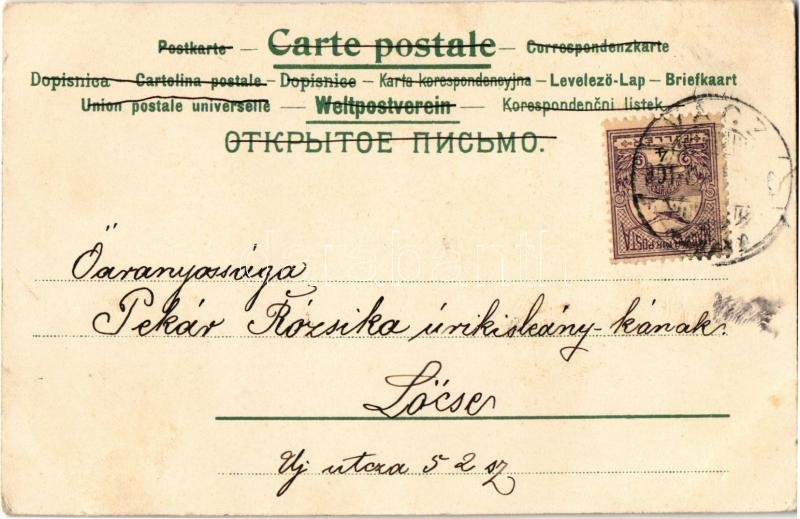 Postkarte – Carte postale – Correspondenzkarte
Dopisnica – Cartolina postale – Dopisnice – Karta korespondencyjna – Levelező-Lap – Briefkaart
Union postale universelle – Weltpostverein – Korespondenčni listek
ОТКРЫТОЕ ПИСЬМО.
Őaranyossága
Pekár Rózsika úrikisleány-kának.
Lőcse
Uj utcza 52 sz
darabanth